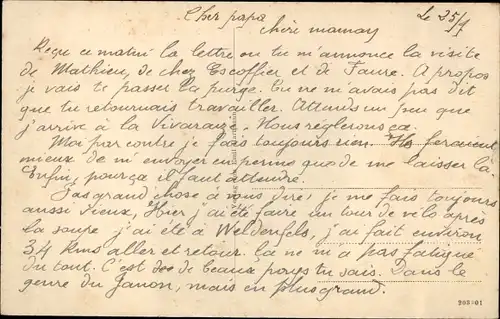 Cher papa
chère maman
Le 25/4
Reçu ce matin la lettre ou tu m'annonce la visite
de Mathieu, de chez Escoffier et de Faure. A propos
je vais te passer la purge. Tu ne m'avais pas dit
que tu retournais travailler. Attends un peu que
j'arrive à la Vivaraize. Nous règlerons ça.
Moi par contre je fais toujours rien. Ils feraient
mieux de m'envoyer en perme que de me laisser là.
Enfin, pour ça il faut attendre.
Pas grand chose à vous dire, je me fais toujours
aussi vieux, Hier j'ai été faire un tour de vélo après
la soupe j'ai été à Weldenfels, j'ai fait environ
34 kms aller et retour. Ça ne m'a pas fatigué
du tout. C'est de beaux pays tu sais. Dans le
genre du Janon, mais en plus grand.
203101